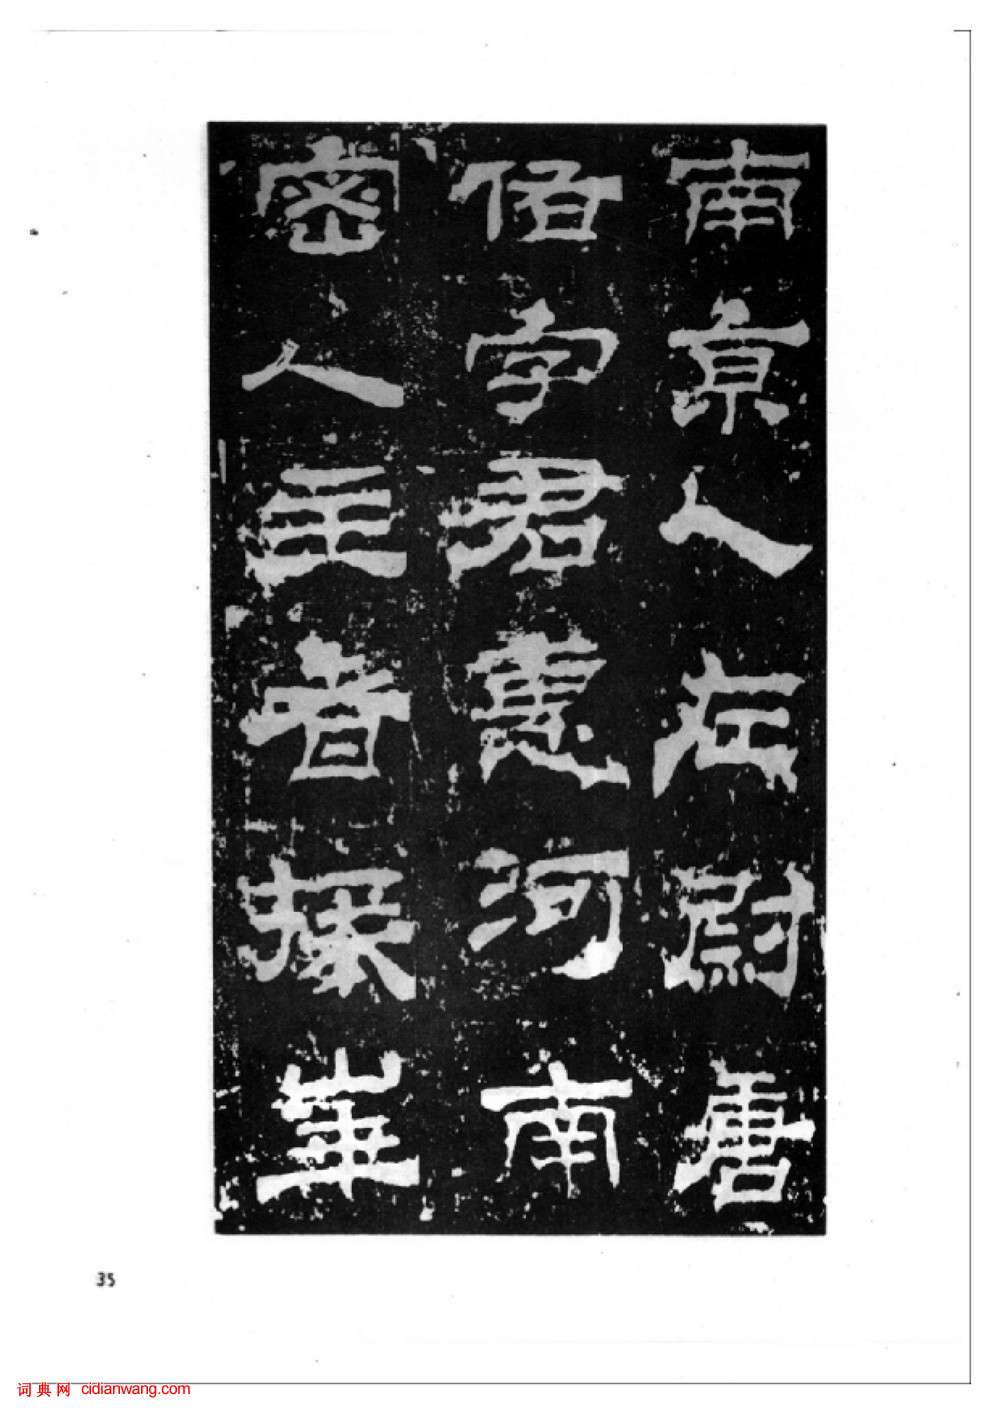 南京人左尉唐
佑字君惠河南
密人主者掾華
35
词典网 cidianwang.com